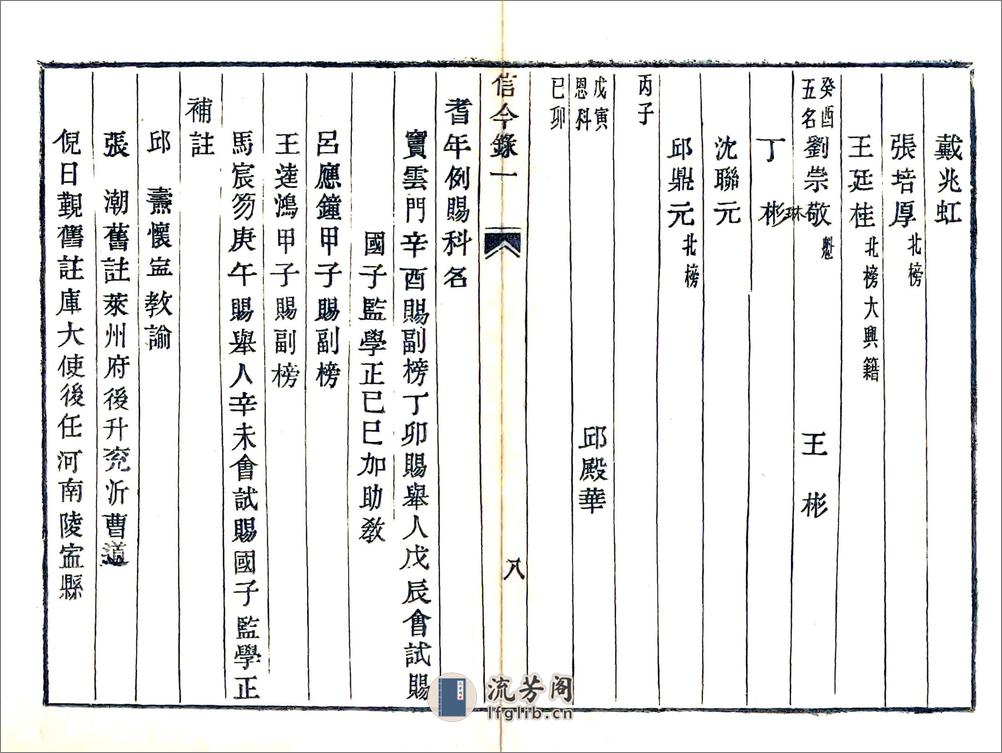 戴兆虹
張培厚 北榜
王廷桂 北榜大興籍
癸酉五名 劉崇敬 魁 王 彬
丁 彬 琳
沈聯元
邱鼎元 北榜
丙子
戊寅恩科 邱殿華
己卯
信今錄一 八
耆年例賜科名
竇雲門辛酉賜副榜丁卯賜舉人戊辰會試賜
國子監學正己巳加助教
呂應鐘甲子賜副榜
王逵鴻甲子賜副榜
馬宸笏庚午賜舉人辛未會試賜國子監學正
補註
邱 燾懷寍教諭
張 潮舊註萊州府後升兖沂曹道
倪日覲舊註庫大使後任河南陵寍縣
流芳阁
lfglib.cn